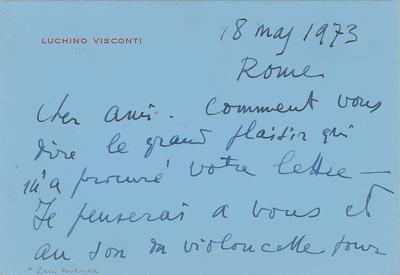 LUCHINO VISCONTI
18 maj 1973
Rome
Cher ami. Comment vous
dire le grand plaisir qui
m'a procuré votre lettre —
Je penserai a vous et
au son du violoncelle pour